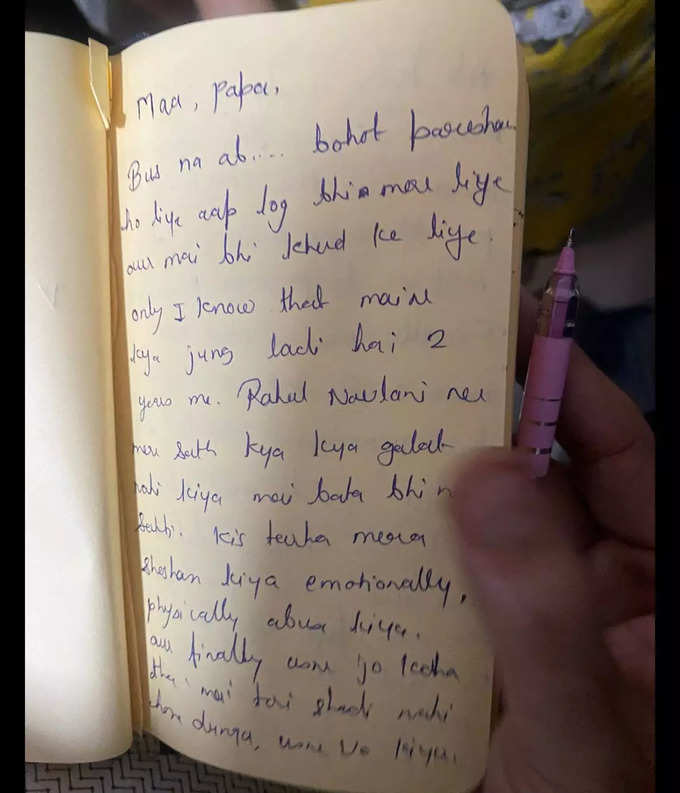 Maa, papa,
Bus na ab.... bohot pareshan
ho liye aap log bhi mere liye
aur mai bhi khud ke liye.
only I know that maine
kya jung ladi hai 2
years me. Rahul Navlani ne
mere sath kya kya galat
nahi kiya mai bata bhi n
Sakti. Kis tarha mera
shoshan kiya emotionally,
physically abuse kiya.
aur finally usne jo kaha
tha mai teri shadi nahi
hone dunga, usne vo kiya.